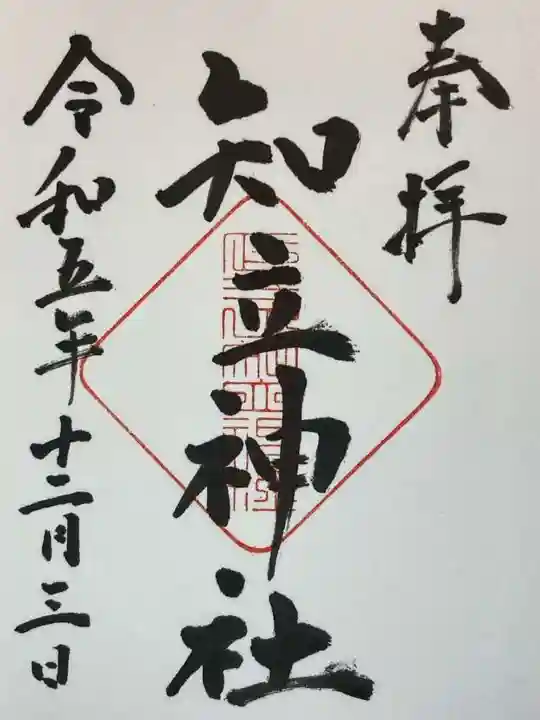 奉拝
知立神社
令和五年十二月三日